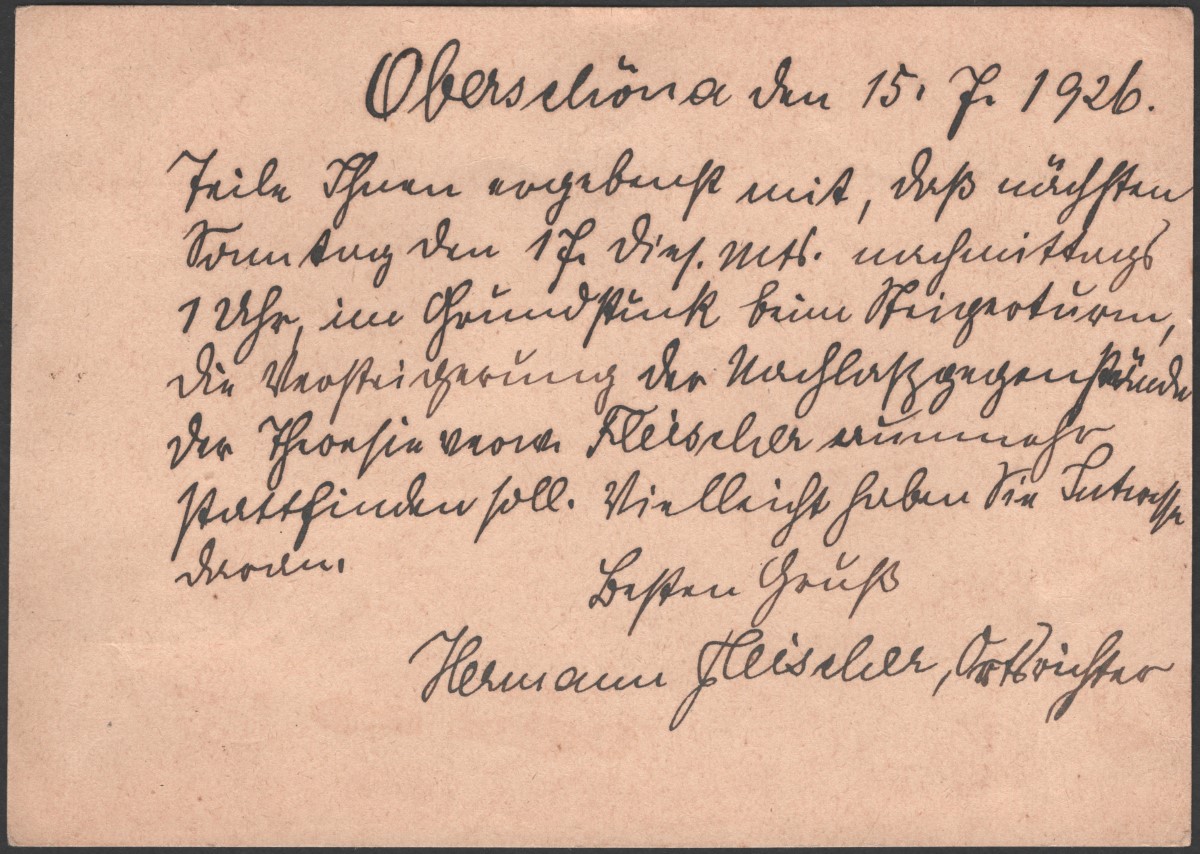 Oberschöna den 15. 7. 1926.
Teile Ihnen ergebenst mit, daß nächsten
Sonntag den 17. dies. Mts. nachmittags
1 Uhr, im Grundstück beim Steigerturm,
die Versteigerung der Nachlaßgegenstände
der Theresie verw. Fleischer nunmehr
stattfinden soll. Vielleicht haben Sie Interesse
daran.
Besten Gruß
Hermann Fleischer, Ortsrichter